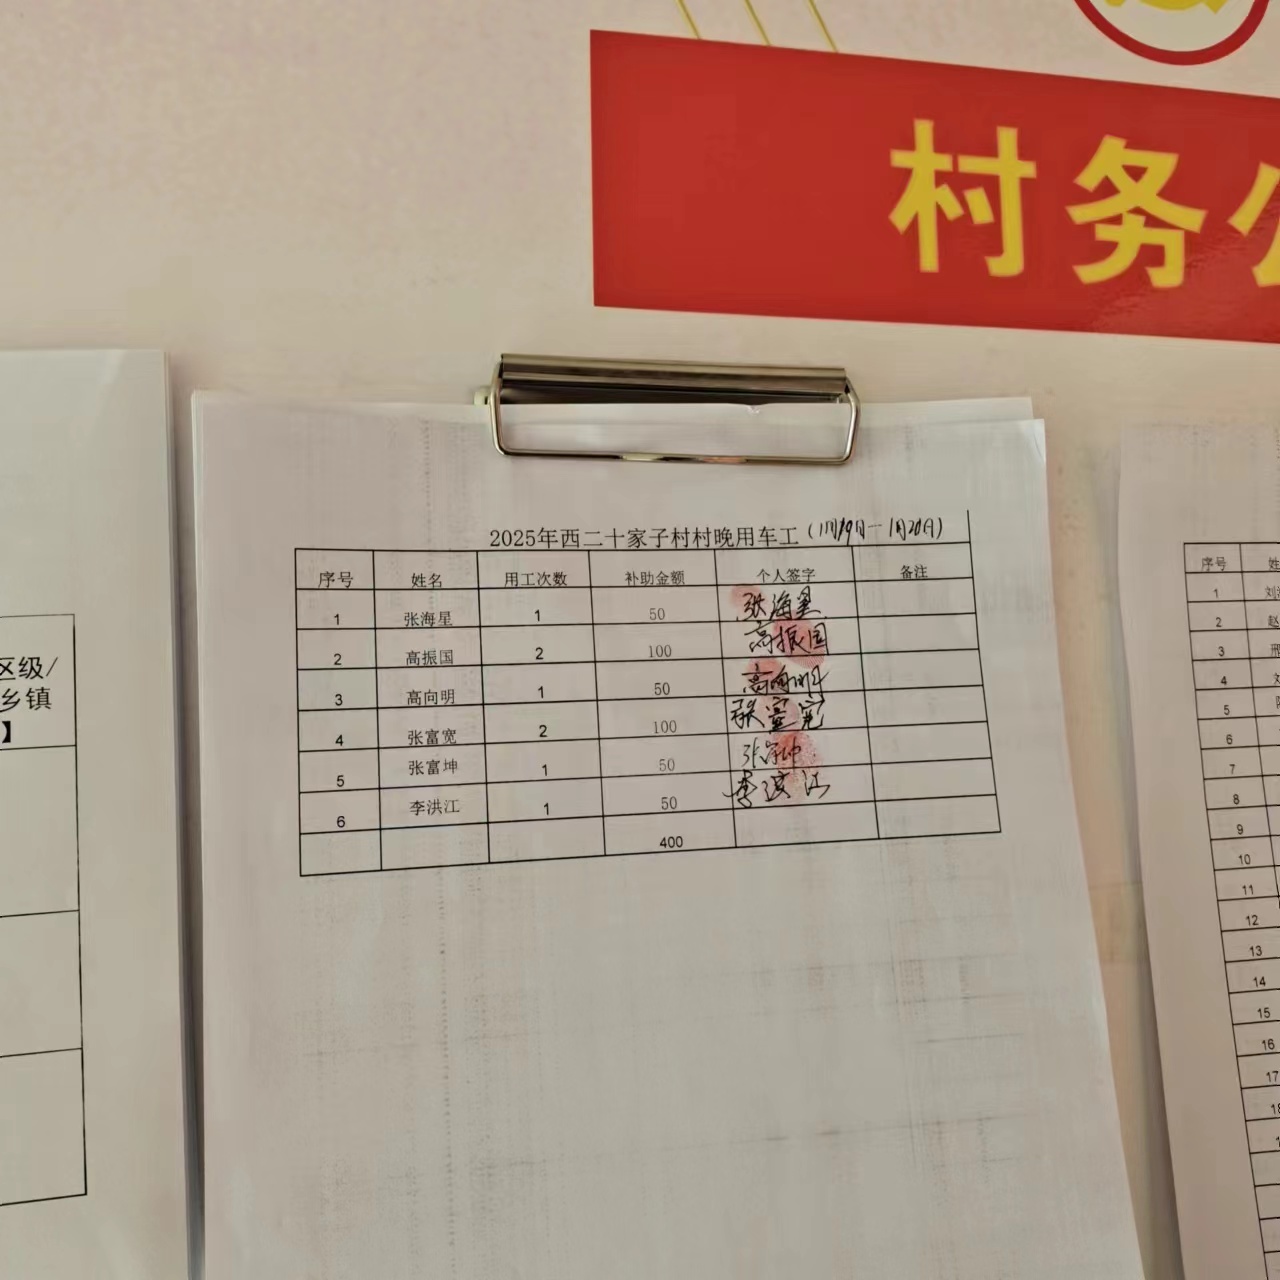 村务公
2025年西二十家子村村晚用车工（1月19日－1月20日）
序号 姓名 用工次数 补助金额 个人签字 备注
1 张海星 1 50 张海星
2 高振国 2 100 高振国
3 高向明 1 50 高向明
4 张富宽 2 100 张富宽
5 张富坤 1 50 张富坤
6 李洪江 1 50 李洪江
400
区级/
乡镇
】
序号 姓
1 刘
2 赵
3 邢
4 刘
5
6
7
8
9
10
11
12
13
14
15
16
17
18